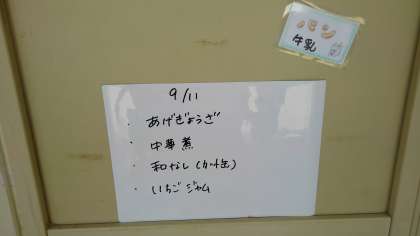 パン
牛乳
9/11
・あげぎょうざ
・中華煮
・和なし(カット缶)
・いちごジャム